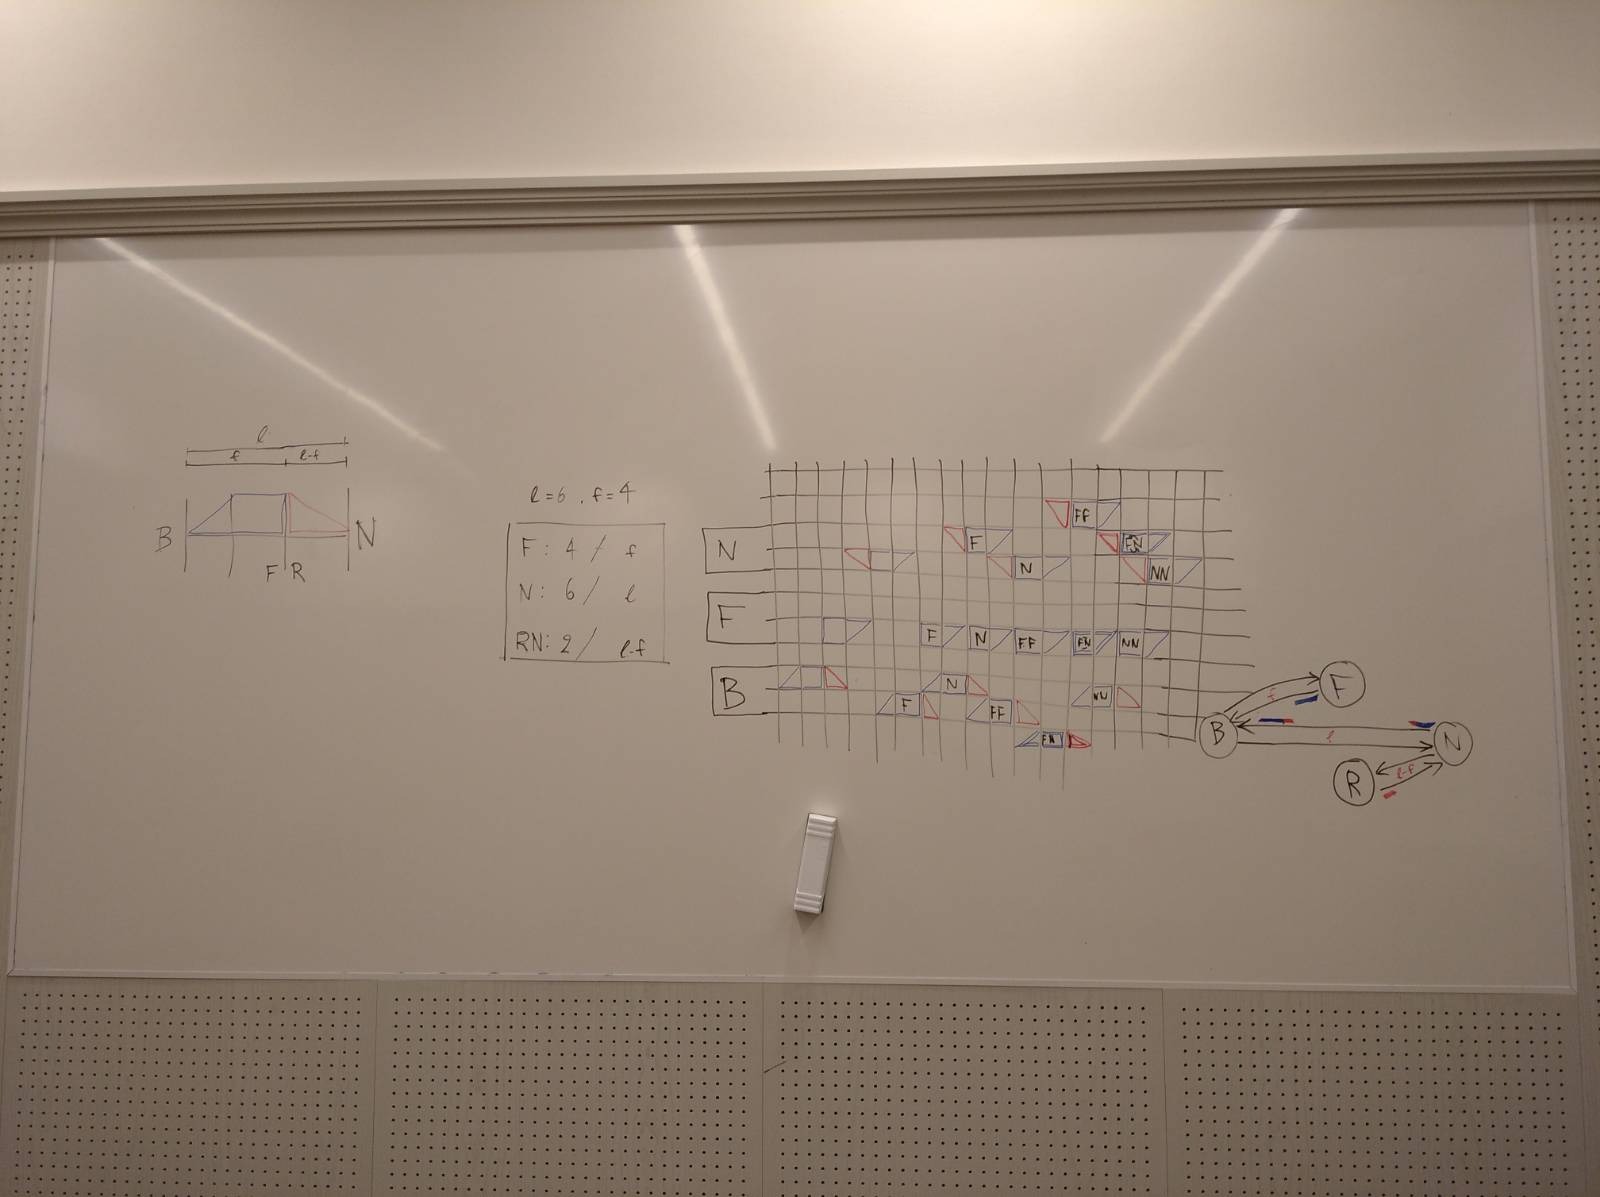 l
f l-f
B N
F R
l=6, f=4
F: 4 / f
N: 6 / l
RN: 2 / l-f
N
F
B
FF
F FN
N NN
F N FF FN NN
N NN
F FF
FN
F
f
B N
l
R l-f